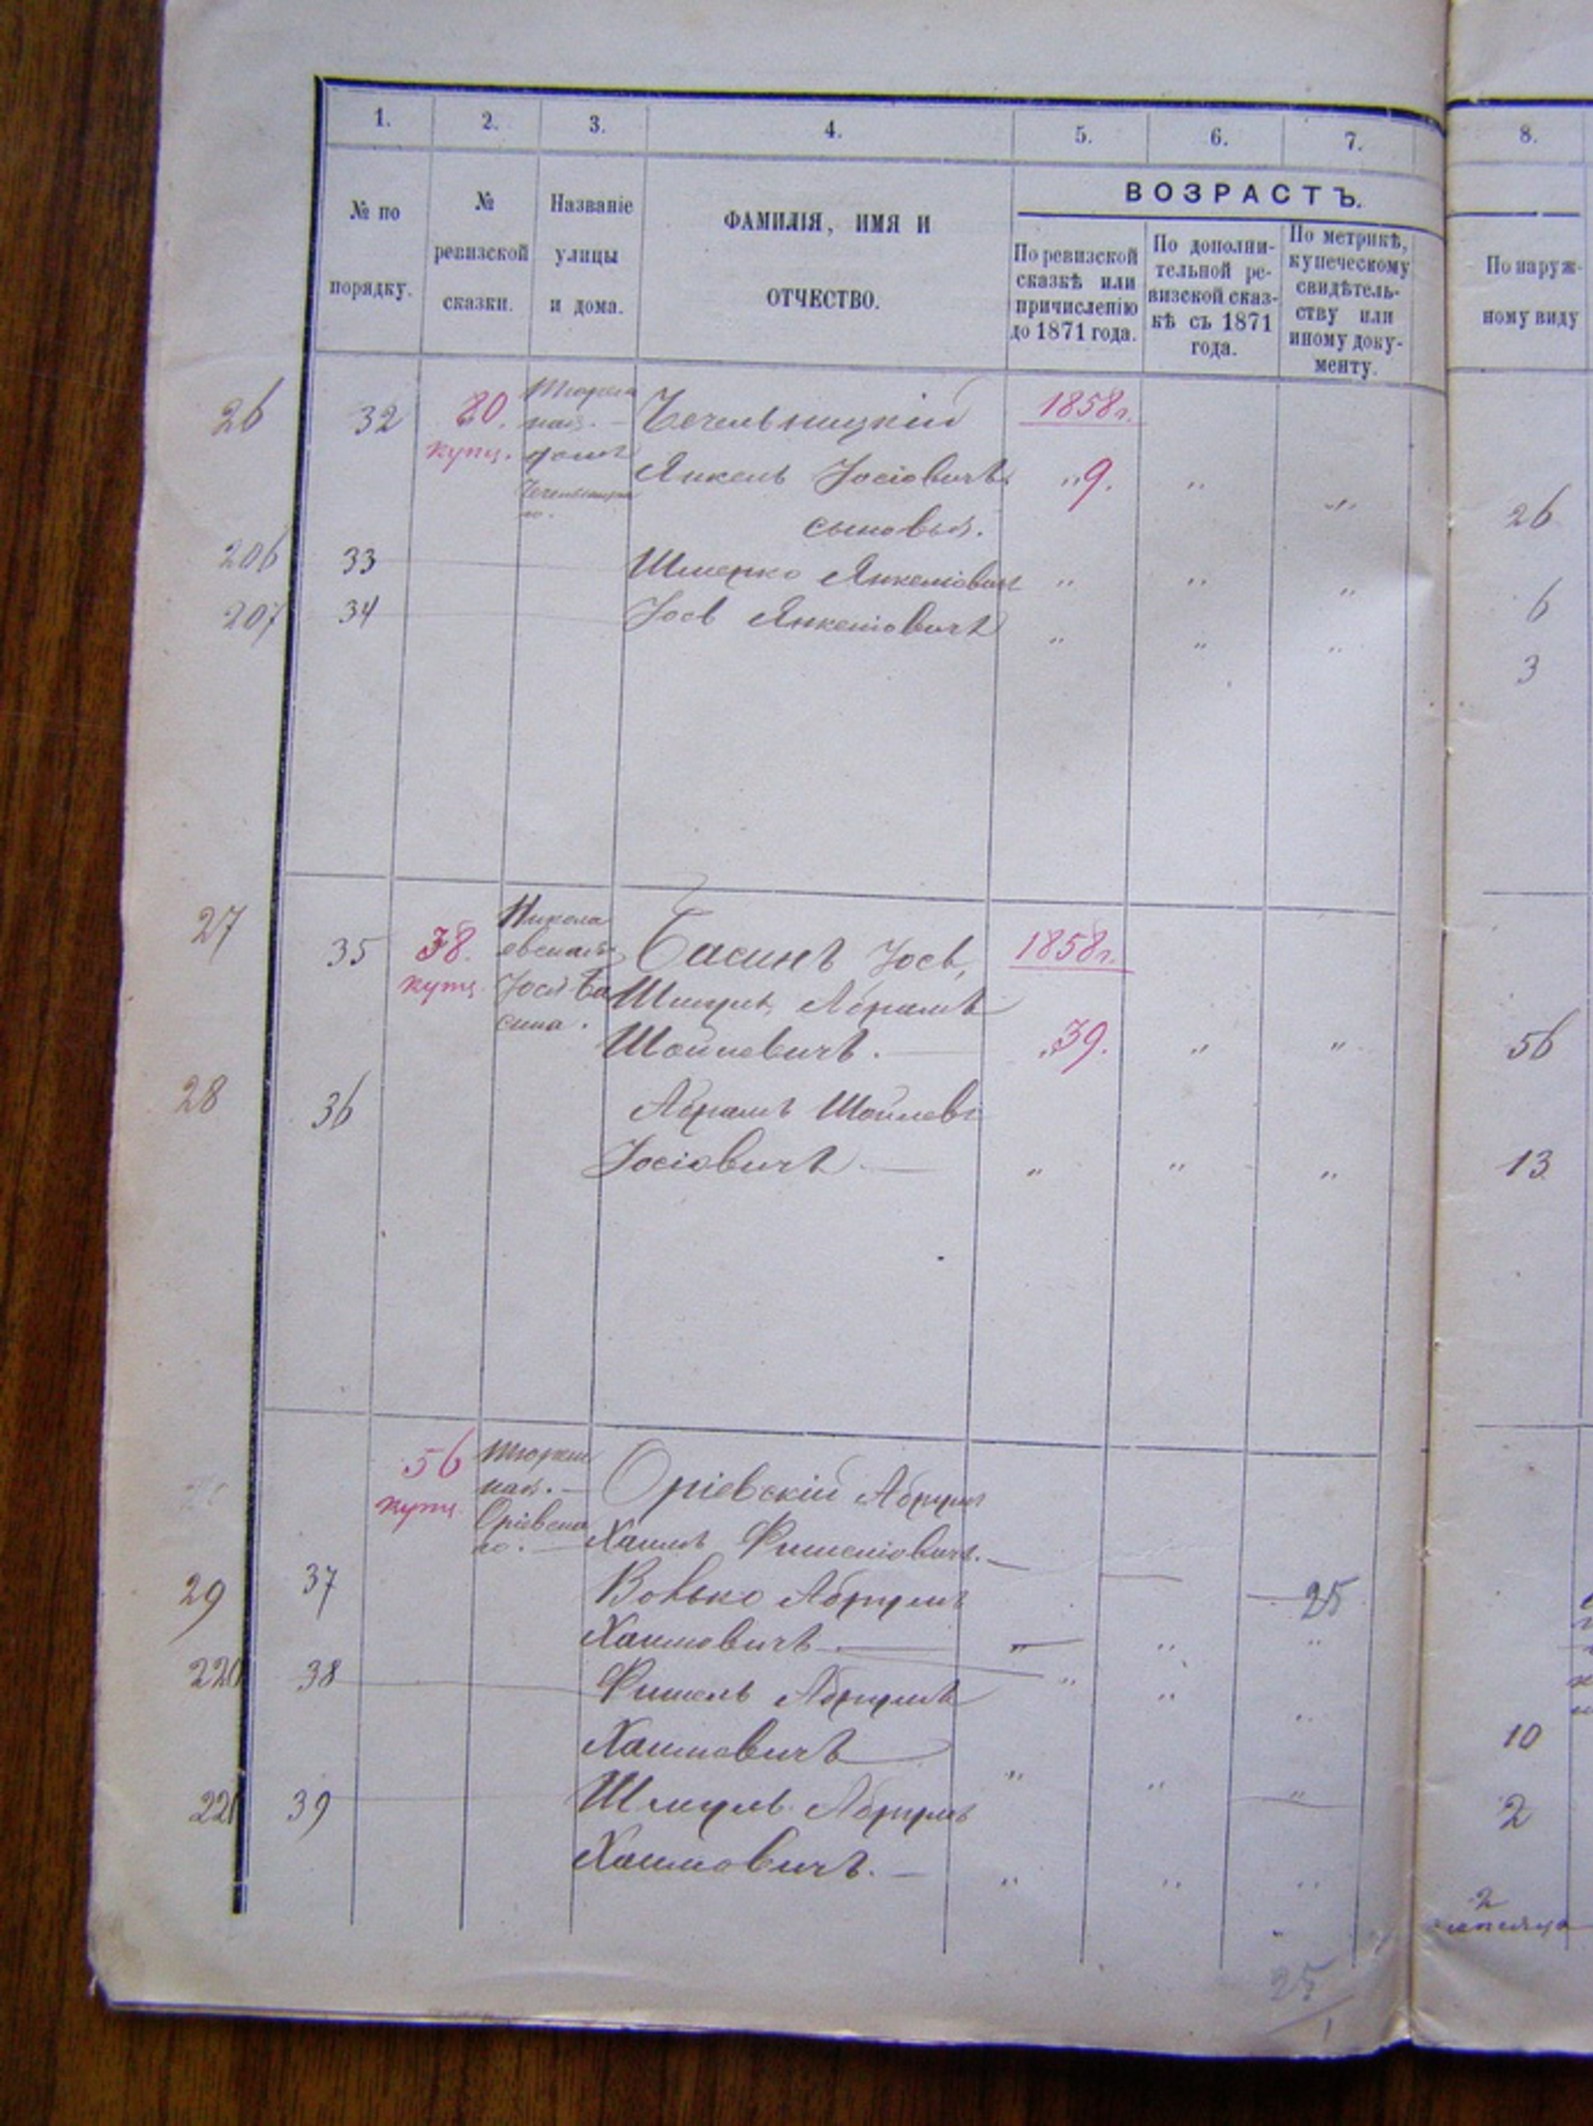 1. 2. 3. 4. 5. 6. 7. 8.
№ по порядку.
№ ревизской сказки.
Названіе улицы и дома.
ФАМИЛІЯ, ИМЯ И
ОТЧЕСТВО.
ВОЗРАСТЪ.
По ревизской
сказкѣ или
причисленію
до 1871 года.
По дополни-
тельной ре-
визской сказ-
кѣ съ 1871
года.
По метрикѣ,
купеческому
свидѣтель-
ству или
иному доку-
менту.
По наруж-
ному виду
26 32 80. Чечельницкій 1858г.
купц. домъ Янкель Іосіовичъ „9. „ „ 26
сыновья.
206 33 Шмерко Янкеліович „ „ „ 6
207 34 Іось Янкеліовичъ „ „ „ 3
27 35 38. Никола
евская Басинъ Іось, 1858г.
купц. Іося Ба
сина. Шмуль, Абрамъ
Шойлевичъ. „39. „ „ 56
28 36 Абрамъ Шойлевъ
Іосіовичъ „ „ „ 13
56
купц. Оріевска
го. Оріевскій Абрум
Хаимъ Фишеліовичъ.
29 37 Волько Абрумъ 25
Хаимовичъ „ „ „
220 38 Фишель Абрумъ „ „ „
Хаимовичъ 10
221 39 Шмуль Абрумъ „ „ „ 2
Хаимовичъ. „ „ „
2
25
1